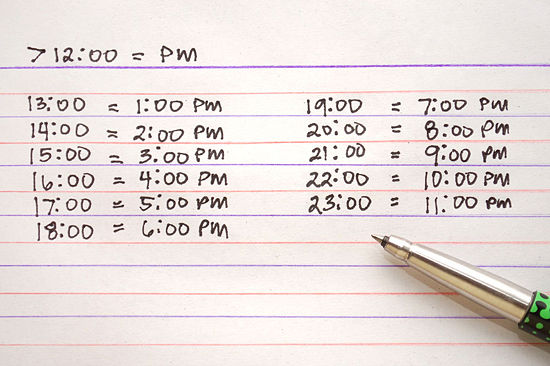 >12:00 = PM
13:00 = 1:00 PM
14:00 = 2:00 PM
15:00 = 3:00 PM
16:00 = 4:00 PM
17:00 = 5:00 PM
18:00 = 6:00 PM
19:00 = 7:00 PM
20:00 = 8:00 PM
21:00 = 9:00 PM
22:00 = 10:00 PM
23:00 = 11:00 PM